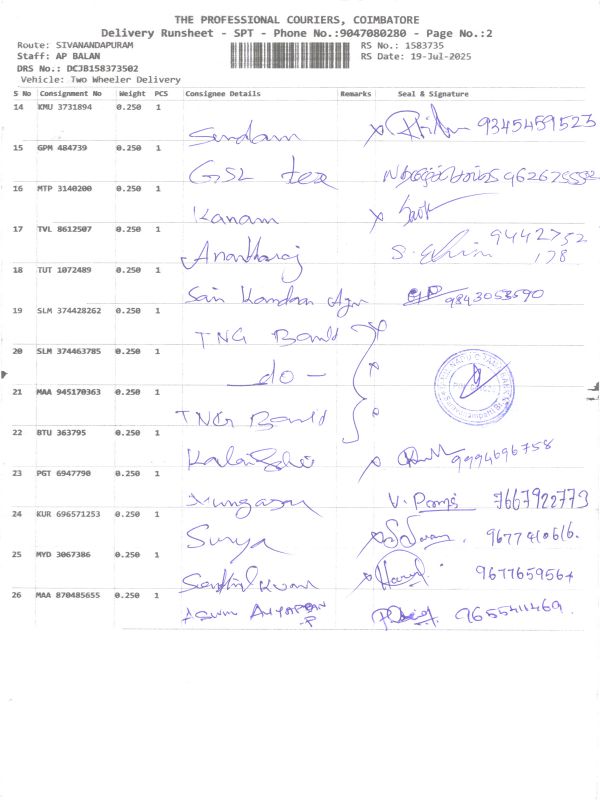 THE PROFESSIONAL COURIERS, COIMBATORE
Delivery Runsheet - SPT - Phone No.:9047080280 - Page No.:2
Route: SIVANANDAPURAM RS No.: 1583735
Staff: AP BALAN RS Date: 19-Jul-2025
DRS No.: DCJB158373502
Vehicle: Two Wheeler Delivery
S No Consignment No Weight PCS Consignee Details Remarks Seal & Signature
14 KMU 3731894 0.250 1
9345459523
15 GPM 484739 0.250 1
GSL tex
16 MTP 3140200 0.250 1
Kanam
17 TVL 8612507 0.250 1
Anantharaj 9442752
178
18 TUT 1072489 0.250 1
Sai Kandan 9843053590
19 SLM 374428262 0.250 1
TNG Bank
20 SLM 374463785 0.250 1
- do -
21 MAA 945170363 0.250 1
TNG Bank
22 BTU 363795 0.250 1
9994696758
23 PGT 6947790 0.250 1
Murugasan 7667922773
24 KUR 696571253 0.250 1
Surya 9677410616.
25 MYD 3067386 0.250 1
9677659564
26 MAA 870485655 0.250 1
9655411469